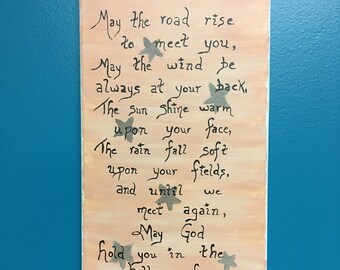 May the road rise
to meet you,
May the wind be
always at your back,
The sun shine warm
upon your face,
The rain fall soft
upon your fields,
and until we
meet again,
May God
hold you in the